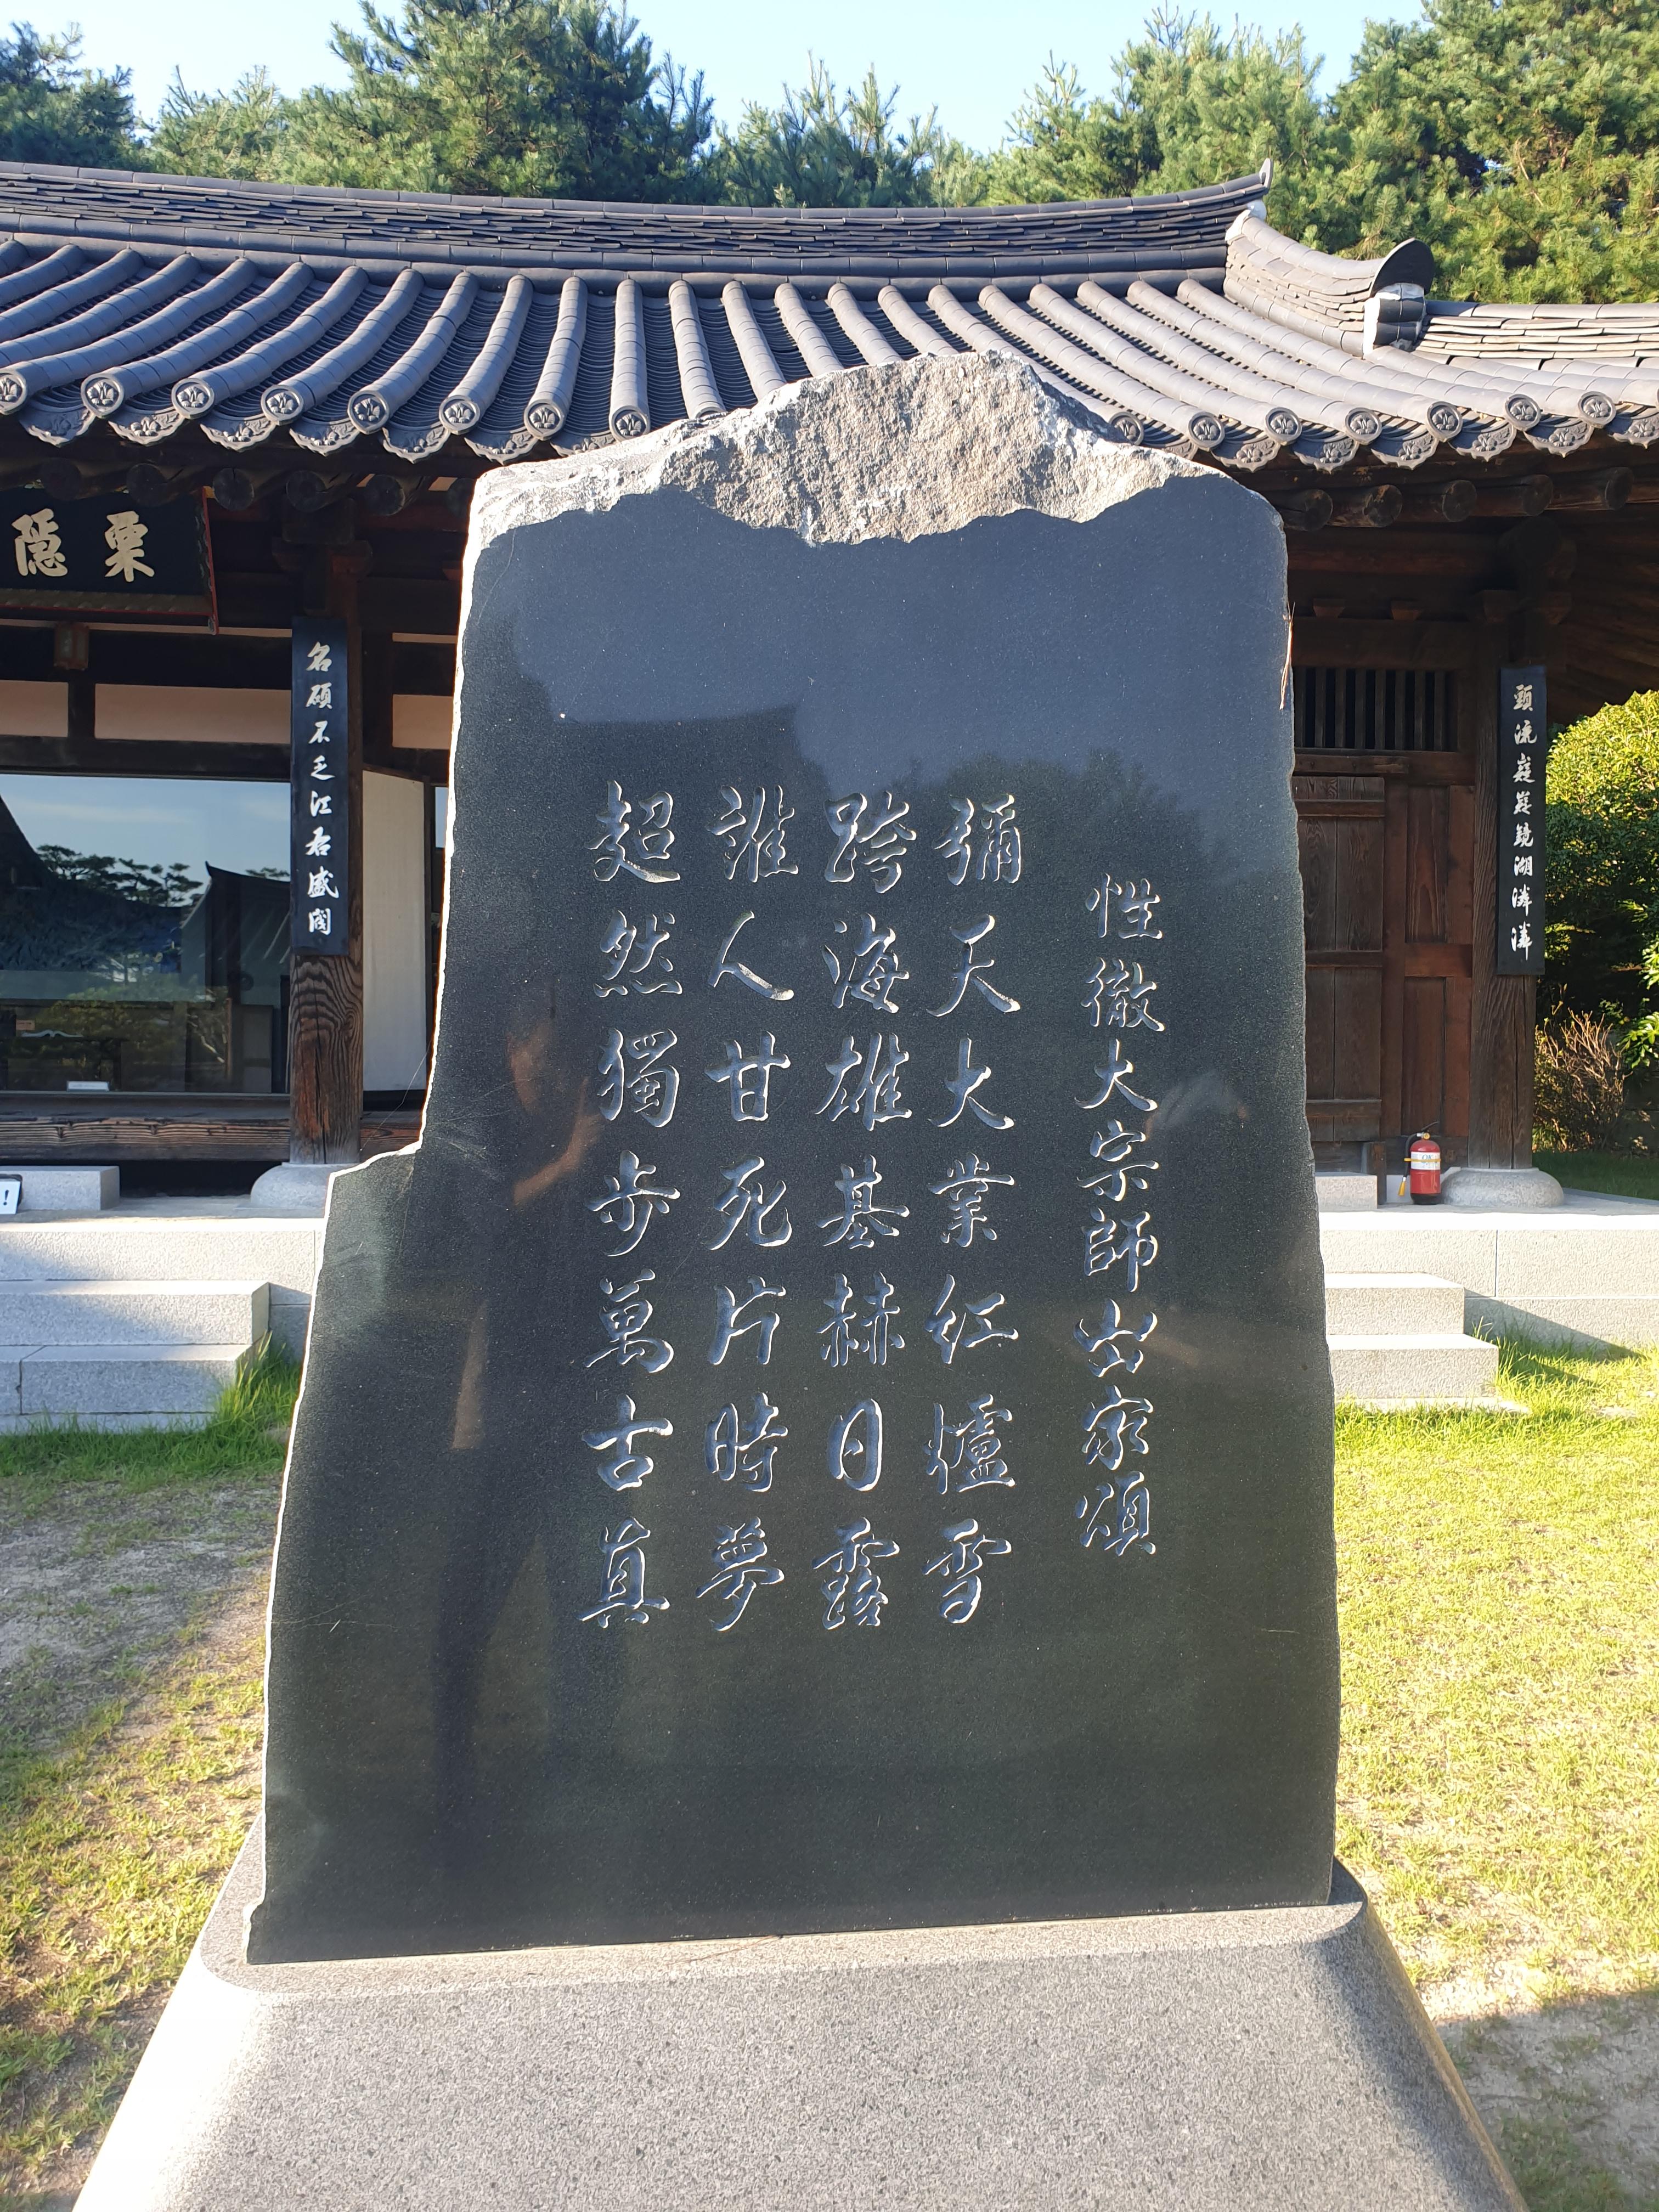 性徹大宗師出家頌
彌天大業红爐雪
跨海雄基赫日露
誰人甘死片時夢
超然獨步萬古真
栗隱
名碩不乏江右盛國
頭流嶷嶷鏡湖潾潾
!